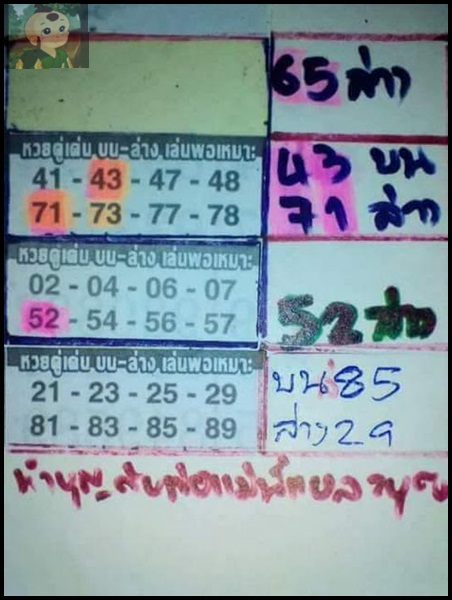 65 ล่าง
หวยคู่เด่น บน-ล่าง เล่นพอเหมาะ
41 - 43 - 47 - 48
71 - 73 - 77 - 78
43 บน
71 ล่าง
หวยคู่เด่น บน-ล่าง เล่นพอเหมาะ
02 - 04 - 06 - 07
52 - 54 - 56 - 57
52 ล่าง
หวยคู่เด่น บน-ล่าง เล่นพอเหมาะ
21 - 23 - 25 - 29
81 - 83 - 85 - 89
บน 85
ล่าง 29
ทำบุญ